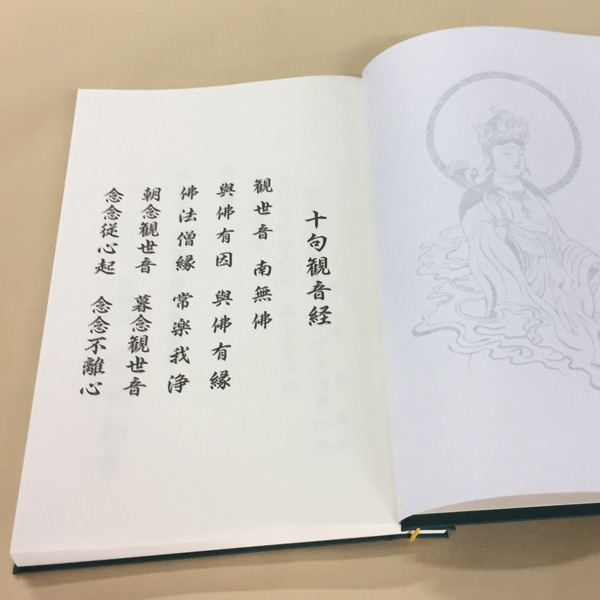 十句観音経
観世音 南無佛
與佛有因 與佛有縁
佛法僧縁 常楽我浄
朝念観世音 暮念観世音
念念従心起 念念不離心